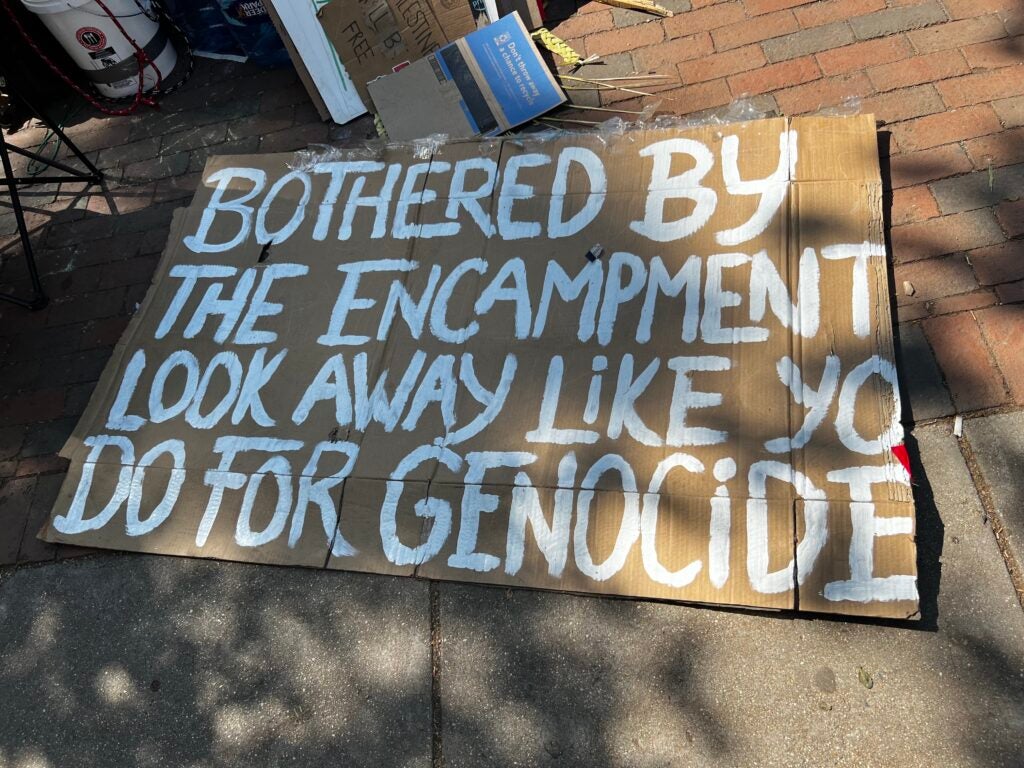 DEER
PARK
PALESTINE
FREE
Don't throw away
a chance to recycle
BOTHERED BY
THE ENCAMPMENT
LOOK AWAY LIKE YO
DO FOR GENOCIDE